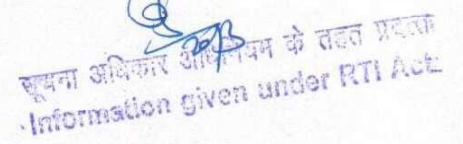 सूचना अधिकार अधिनियम के तहत प्रदत्त
Information given under RTI Act